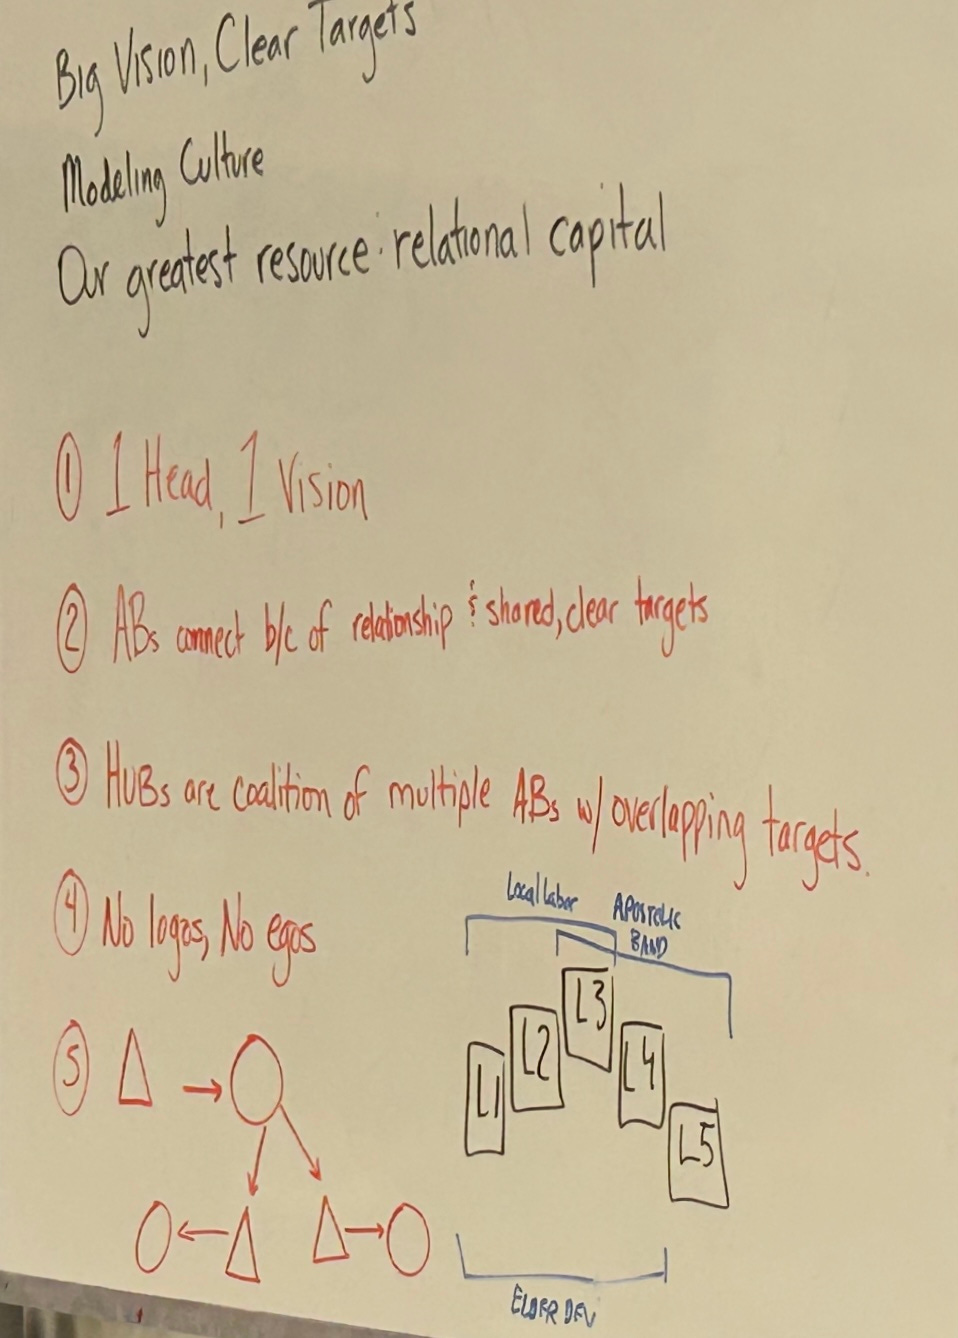 Big Vision, Clear Targets
Modeling Culture
Our greatest resource: relational capital
① 1 Head, 1 Vision
② ABs connect b/c of relationship & shared, clear targets
③ HUBs are coalition of multiple ABs w/ overlapping targets.
④ No logos, No egos
⑤
Local Labor
APOSTOLIC
BAND
L1
L2
L3
L4
L5
ELDER DEV